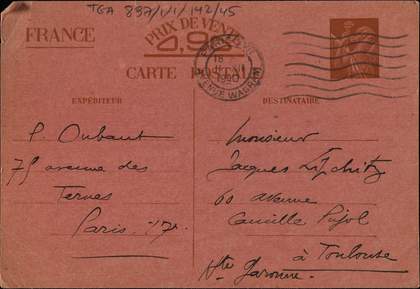 TGA 897/1/1/142/45
FRANCE
PRIX DE VENTE
0,90
CARTE POSTALE
PARIS XVII
18
1940
AVENUE WAGRAM
EXPÉDITEUR
P. Oubaut
75 avenue des
Ternes
Paris - 17e
DESTINATAIRE
Monsieur
Jacques Lipchitz
60 avenue
Camille Pujol
à Toulouse
Hte Garonne